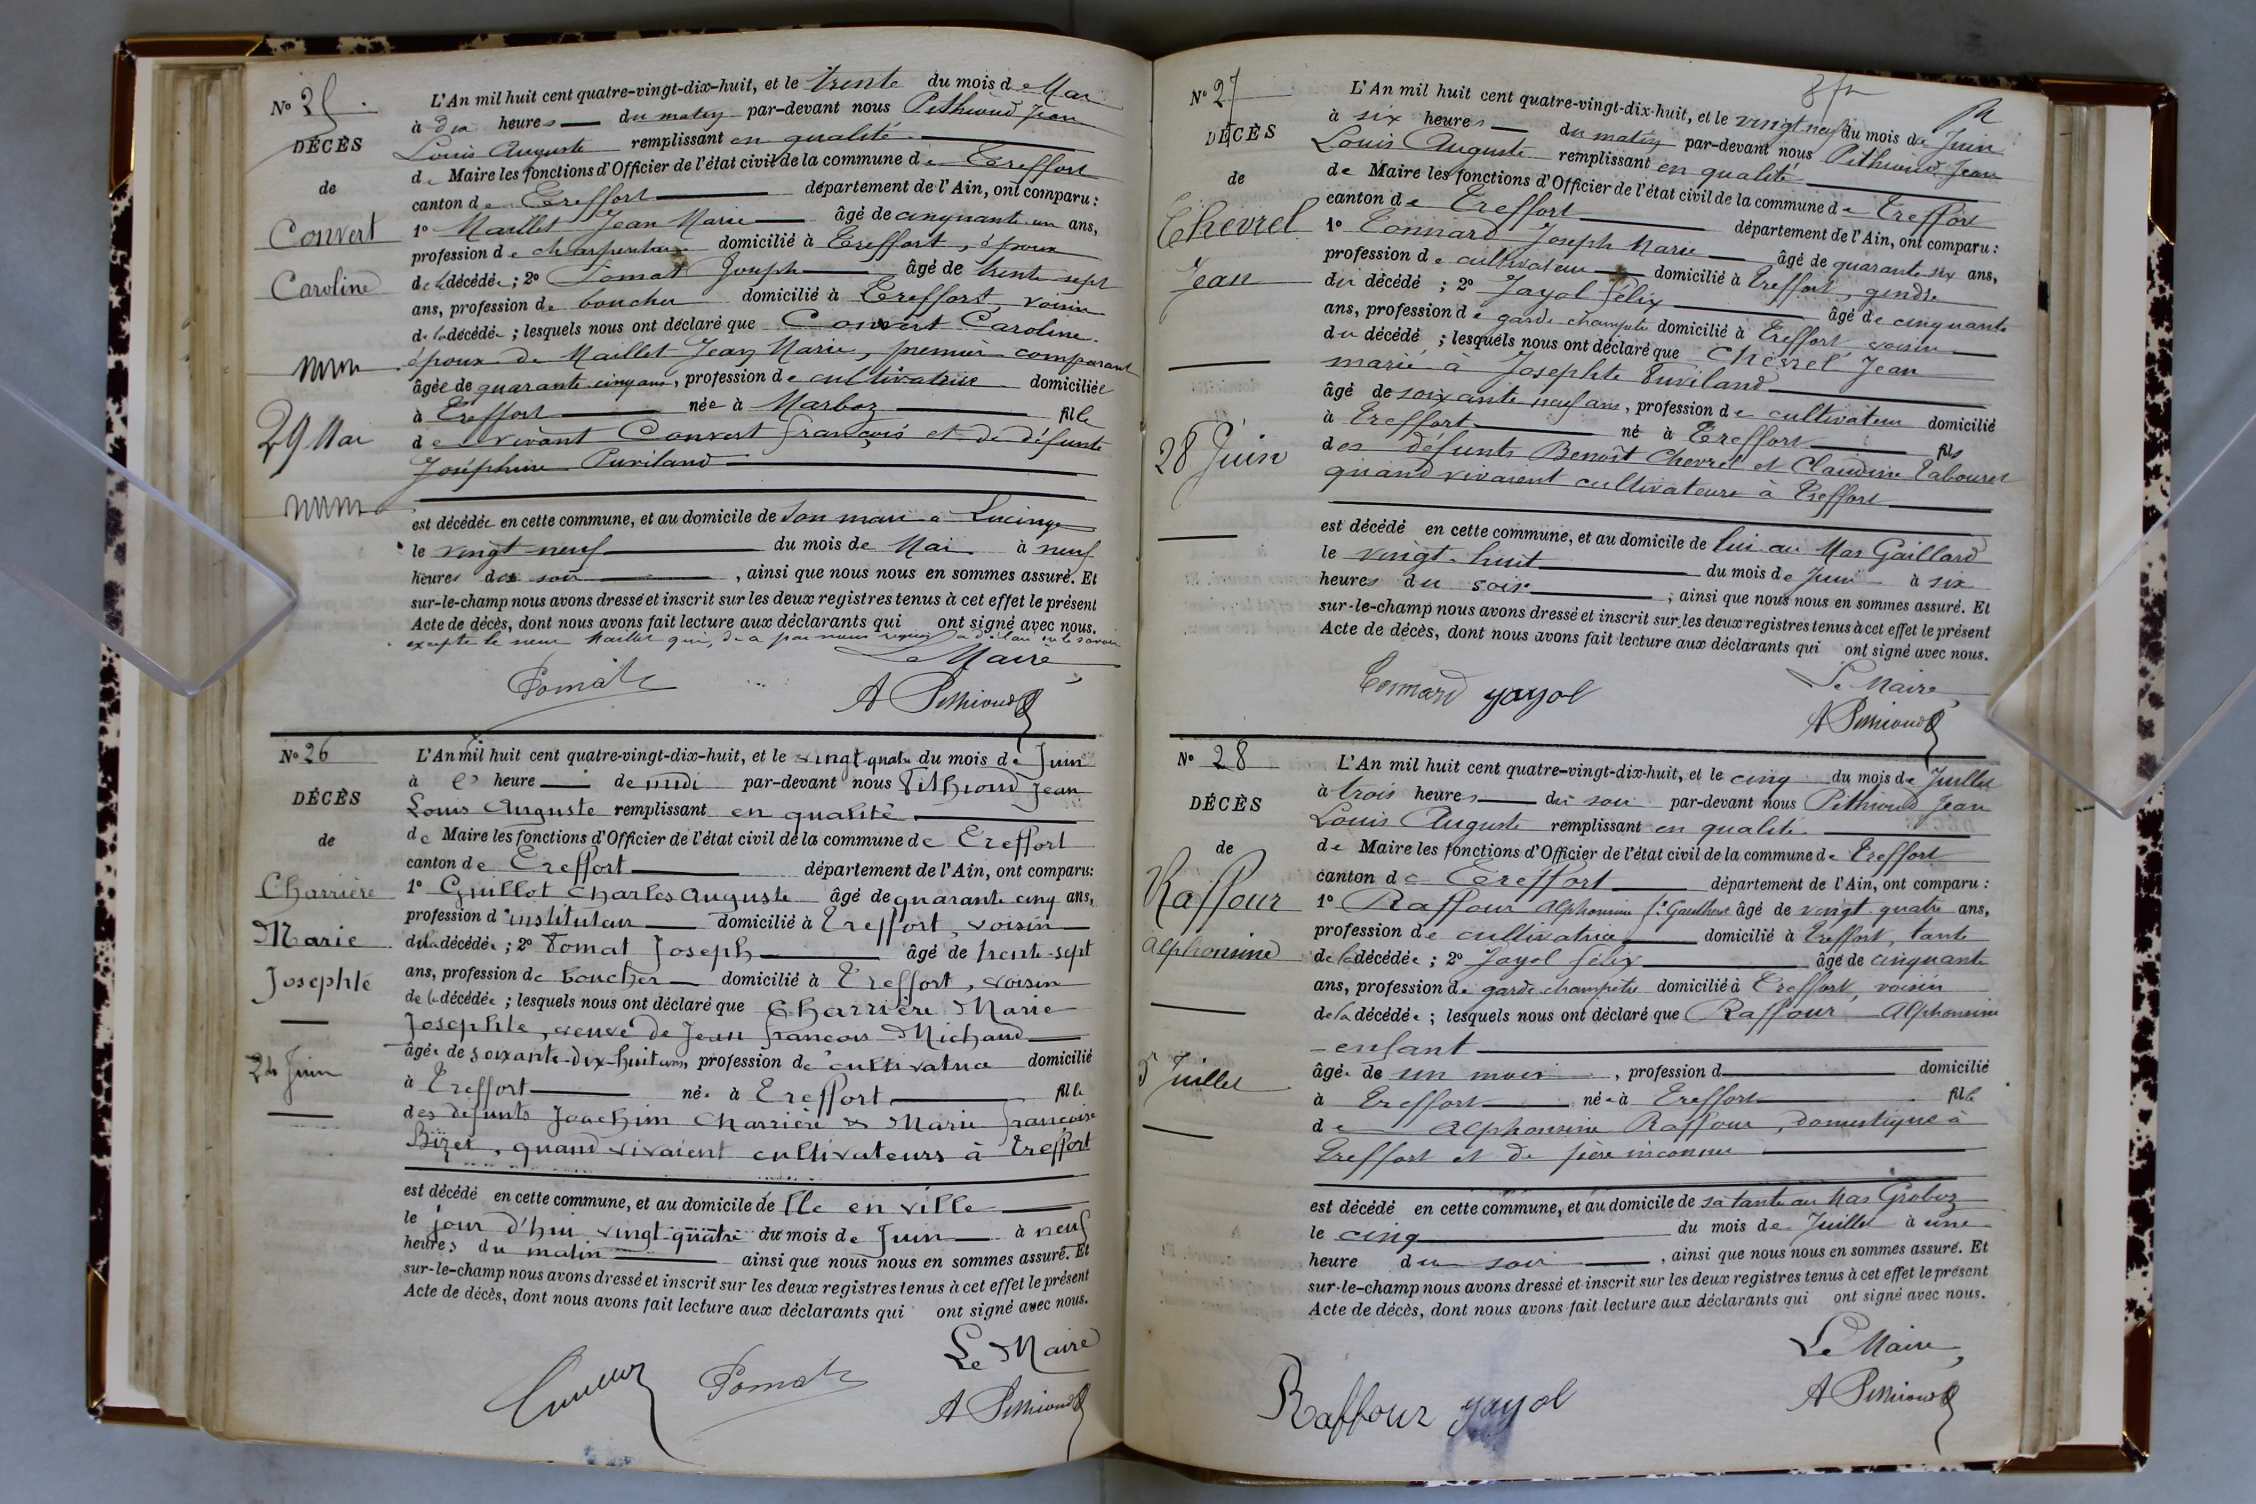 Nº 25
DÉCÈS
de
Convert
Caroline
29 Mai
L'An mil huit cent quatre-vingt-dix-huit, et le trente du mois de Mai
à dix heures du matin par-devant nous Pethioud Jean
Louis Auguste remplissant en qualité
de Maire les fonctions d'Officier de l'état civil de la commune de Treffort
canton de Treffort département de l'Ain, ont comparu :
1º Maillet Jean Marie âgé de cinquante un ans,
profession de charpentier domicilié à Treffort, époux
de la décédée ; 2º Tomat Joseph âgé de trente sept
ans, profession de boucher domicilié à Treffort, voisin
de la décédée ; lesquels nous ont déclaré que Convert Caroline
épouse de Maillet Jean Marie, premier comparant
âgée de quarante cinq ans, profession de cultivatrice domiciliée
à Treffort née à Marboz fille
de vivant Convert François et de défunte
Joséphine Puviland
est décédée en cette commune, et au domicile de son mari à Lucinge
le vingt neuf du mois de Mai à neuf
heures du soir, ainsi que nous nous en sommes assuré. Et
sur-le-champ nous avons dressé et inscrit sur les deux registres tenus à cet effet le présent
Acte de décès, dont nous avons fait lecture aux déclarants qui ont signé avec nous.
excepté le sieur Maillet qui, de ce par nous requis a déclaré ne le savoir
Le Maire
Tomat
A Pethioud
Nº 26
DÉCÈS
de
Charrière
Marie
Josephte
24 Juin
L'An mil huit cent quatre-vingt-dix-huit, et le vingt-quatre du mois de Juin
à heure de midi par-devant nous Pethioud Jean
Louis Auguste remplissant en qualité
de Maire les fonctions d'Officier de l'état civil de la commune de Treffort
canton de Treffort département de l'Ain, ont comparu:
1º Guillot Charles Auguste âgé de quarante cinq ans,
profession d'instituteur domicilié à Treffort, voisin
de la décédée ; 2º Tomat Joseph âgé de trente-sept
ans, profession de boucher domicilié à Treffort, voisin
de la décédée ; lesquels nous ont déclaré que Charrière Marie
Josephte, veuve de Jean François Michaud
âgée de soixante-dix-huit ans, profession de cultivatrice domicilié
à Treffort née à Treffort fille
des défunts Joachim Charrière & Marie Françoise
Bizet, quand vivaient cultivateurs à Treffort
est décédé en cette commune, et au domicile de Elle en ville
le jour d'hui vingt-quatre du mois de Juin à neuf
heures du matin ainsi que nous nous en sommes assuré. Et
sur-le-champ nous avons dressé et inscrit sur les deux registres tenus à cet effet le présent
Acte de décès, dont nous avons fait lecture aux déclarants qui ont signé avec nous.
Le Maire
Tomat
A Pethioud
Nº 27
DÉCÈS
de
Chevrel
Jean
28 Juin
L'An mil huit cent quatre-vingt-dix-huit, et le vingt neuf du mois de Juin
à six heures du matin par-devant nous Pethioud Jean
Louis Auguste remplissant en qualité
de Maire les fonctions d'Officier de l'état civil de la commune de Treffort
canton de Treffort département de l'Ain, ont comparu :
1º Connard Joseph Marie âgé de quarante six ans,
profession de cultivateur domicilié à Treffort, gendre
du décédé ; 2º Jayol Félix âgé de cinquante
ans, profession de garde champêtre domicilié à Treffort voisin
du décédé ; lesquels nous ont déclaré que Chevrel Jean
marié à Josephte Puviland
âgé de soixante neuf ans, profession de cultivateur domicilié
à Treffort né à Treffort fils
des défunts Benoît Chevrel et Claudine Tabouret
quand vivaient cultivateurs à Treffort
est décédé en cette commune, et au domicile de lui au Mas Gaillard
le vingt-huit du mois de Juin à six
heures du soir ; ainsi que nous nous en sommes assuré. Et
sur-le-champ nous avons dressé et inscrit sur les deux registres tenus à cet effet le présent
Acte de décès, dont nous avons fait lecture aux déclarants qui ont signé avec nous.
Le Maire
Connard Jayol
A Pethioud
Nº 28
DÉCÈS
de
Raffour
Alphonsine
5 Juillet
L'An mil huit cent quatre-vingt-dix-huit, et le cinq du mois de Juillet
à trois heures du soir par-devant nous Pethioud Jean
Louis Auguste remplissant en qualité
de Maire les fonctions d'Officier de l'état civil de la commune de Treffort
canton de Treffort département de l'Ain, ont comparu :
1º Raffour Alphonsine âgé de vingt quatre ans,
profession de cultivatrice domicilié à Treffort, tante
de la décédée ; 2º Jayol Félix âgé de cinquante
ans, profession de garde champêtre domicilié à Treffort, voisin
de la décédée ; lesquels nous ont déclaré que Raffour Alphonsine
enfant
âgée de un mois, profession d domicilié
à Treffort née à Treffort fille
de Alphonsine Raffour, domestique à
Treffort et de père inconnu
est décédé en cette commune, et au domicile de sa tante au Mas Groboz
le cinq du mois de Juillet à une
heure du soir, ainsi que nous nous en sommes assuré. Et
sur-le-champ nous avons dressé et inscrit sur les deux registres tenus à cet effet le présent
Acte de décès, dont nous avons fait lecture aux déclarants qui ont signé avec nous.
Le Maire,
Raffour Jayol
A Pethioud